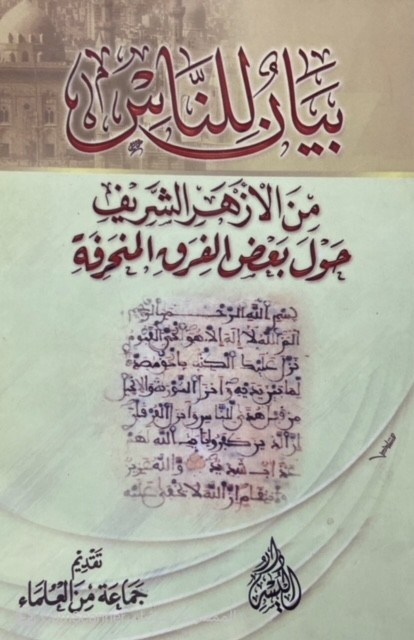 بَيَانٌ لِلنَّاسِ
مِنَ الأَزْهَرِ الشَّرِيفِ
حَوْلَ بَعْضِ الفِرَقِ المُنحَرِفَةِ
بسم الله الرحمن الرحيم
الم الله لا إله إلا هو الحي القيوم
نزل عليك الكتب بالحق مصدقا
لما بين يديه وأنزل التورية والإنجيل
من قبل هدى للناس وأنزل الفرقان
إن الذين كفروا بآيات الله لهم
عذاب شديد والله عزيز
ذو انتقام إن الله لا يخفى عليه
تَقْدِيمُ
جَمَاعَة مِنَ العُلَمَاء
دار اليسر